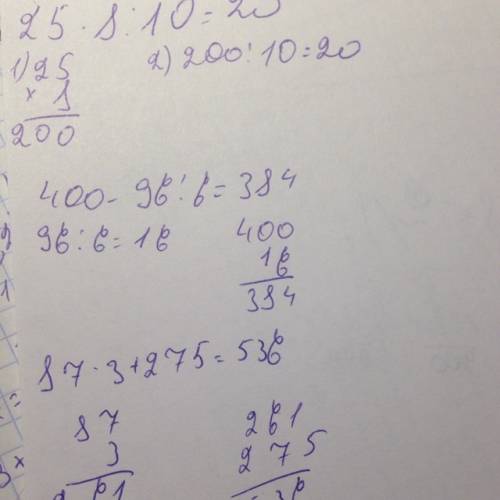 25 · 8 : 10 = 20
1) 25 2) 200 : 10 = 20
× 8
200
400 - 96 : 6 = 384
96 : 6 = 16 400
16
384
87 · 3 + 275 = 536
87 261
3 275
261 536